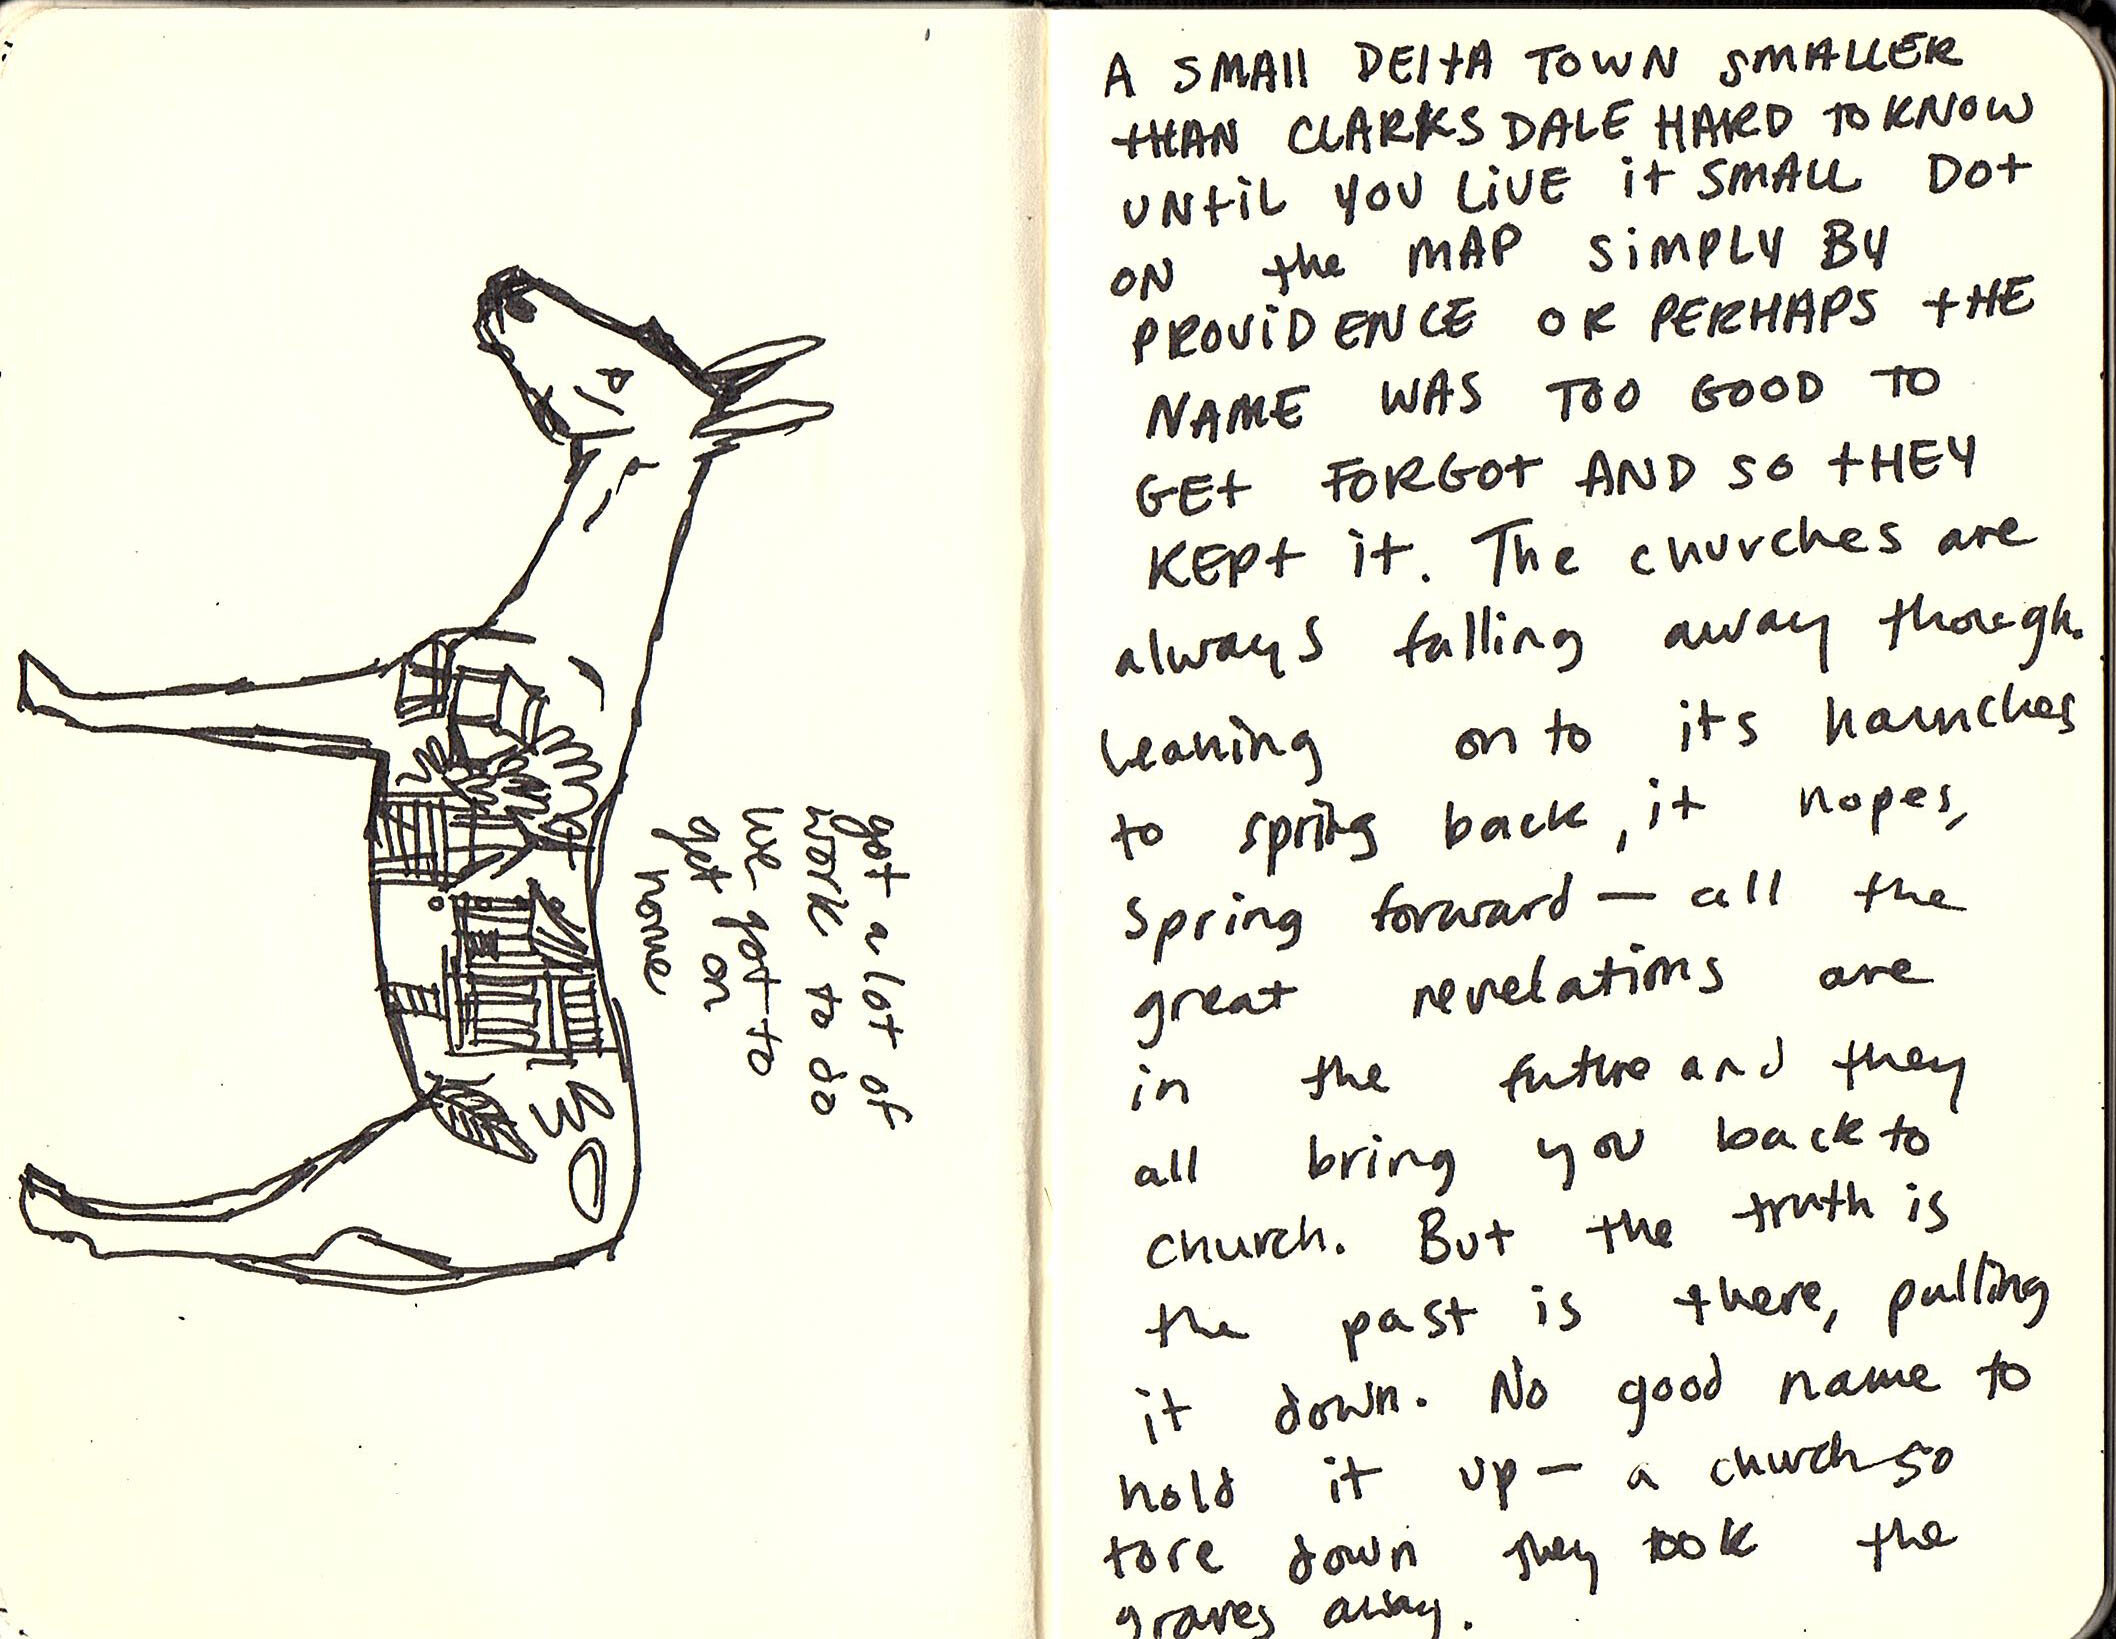 got a lot of
work to do
we got to
get on
home
A SMAll DEltA TOWN SMALLER
tHAN CLARKSDALE HARD TO KNOW
UNtiL YOU LiVE it SMALL DOt
ON the MAP SiMPLY BY
PROViDENCE OR PERHAPS tHE
NAME WAS TOO GOOD TO
GEt FORGOt AND SO tHEY
KEPt it. The churches are
always falling away though.
leaning on to its haunches
to spring back, it hopes,
spring forward — all the
great revelations are
in the future and they
all bring you back to
church. But the truth is
the past is there, pulling
it down. No good name to
hold it up — a church so
tore down they took the
graves away.